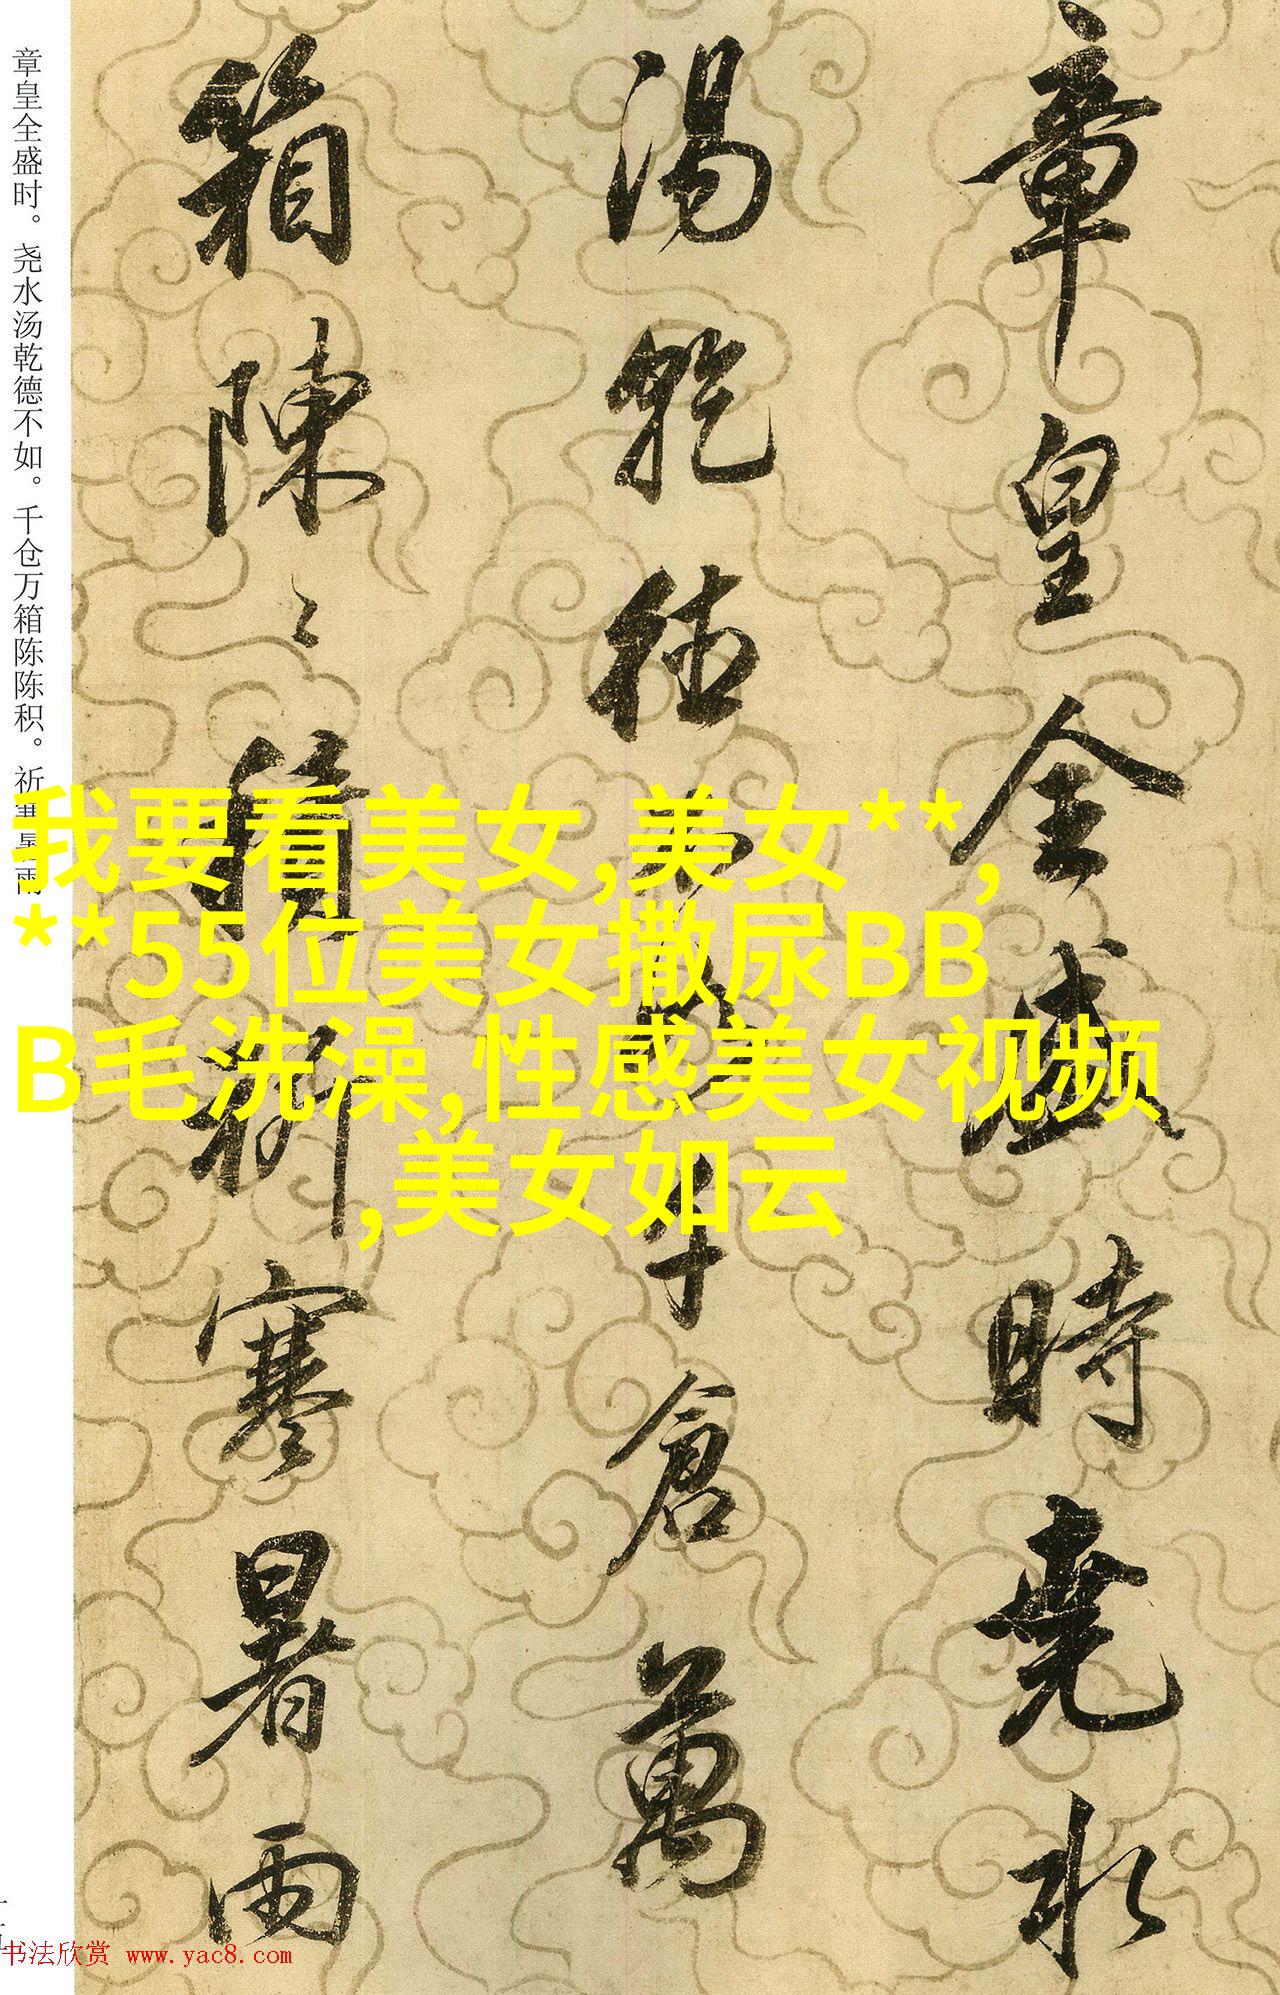 章皇全盛時堯水
湯乾德不如千倉萬
箱陳々積祈寒暑雨
章皇全盛时。尧水汤乾德不如。千仓万箱陈陈积。祈
我要看美女,美女**,
**55位美女撒尿BB
B毛洗澡,性感美女视频
,美女如云
书法欣赏 www.yac8.com